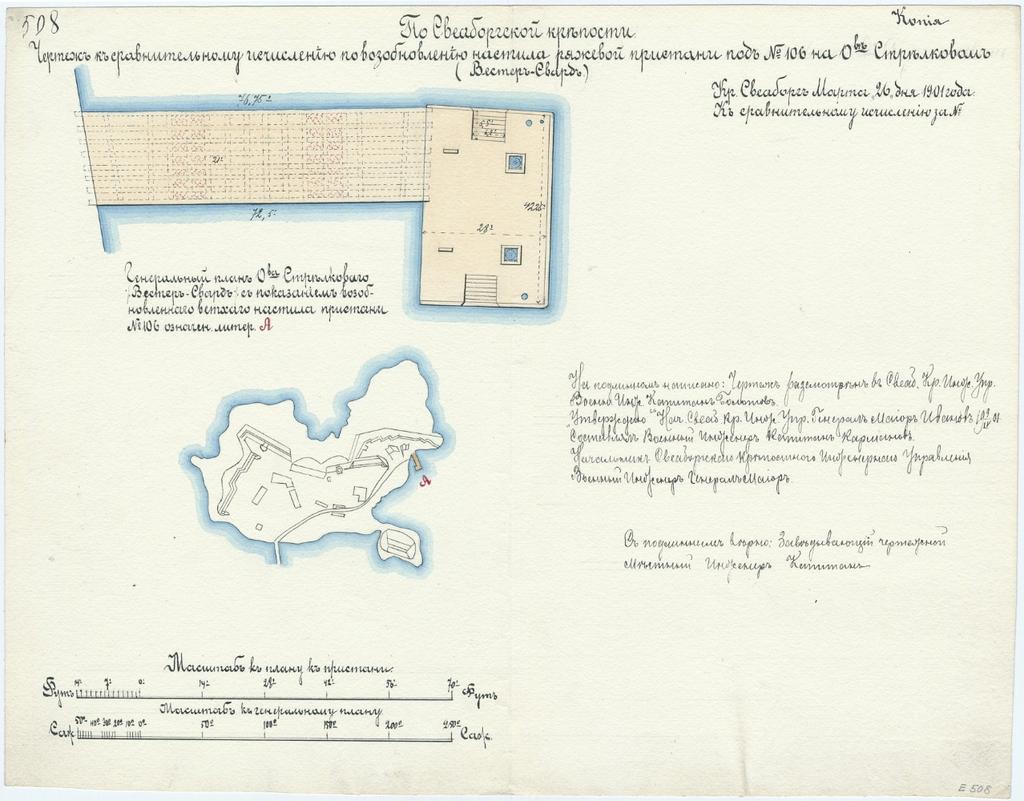 508
Копія
По Свеаборгской крѣпости
Чертежъ къ сравнительному исчисленію по возобновленію настила ряжевой пристани подъ № 106 на О-въ Стрѣлковомъ
(Вестеръ-Свардъ)
Кр. Свеаборгъ Марта „26„ дня 1901 года.
Къ сравнительному исчисленію за №
76,75
21
72,5
28
42
Генеральный планъ О-ва Стрѣлковаго
/Вестеръ-Свардъ/ съ показаніемъ возоб-
новленнаго ветхаго настила пристани
№ 106 означен. литер. А
А
На подлинномъ написано: Чертежъ разсмотрѣнъ въ Свеаб. Кр. Инж. Упр.
Военн. Инж. Капитанъ
Утверждаю Нач. Свеаб. Кр. Инж. Упр. Генералъ Маіоръ Ивановъ
Составилъ Военный Инженеръ Капитанъ
Начальникъ Свеаборгскаго Крѣпостного Инженернаго Управленія
Военный Инженеръ Генералъ Маіоръ.
Съ подлиннымъ вѣрно: Завѣдывающій чертежной
Мѣстный Инженеръ Капитанъ
Масштабъ къ плану къ пристани.
Футъ 14 7 0 14 28 42 56 70 Футъ
Масштабъ къ генеральному плану
Саж. 50 40 30 20 10 0 50 100 150 200 250 Саж.
E 508